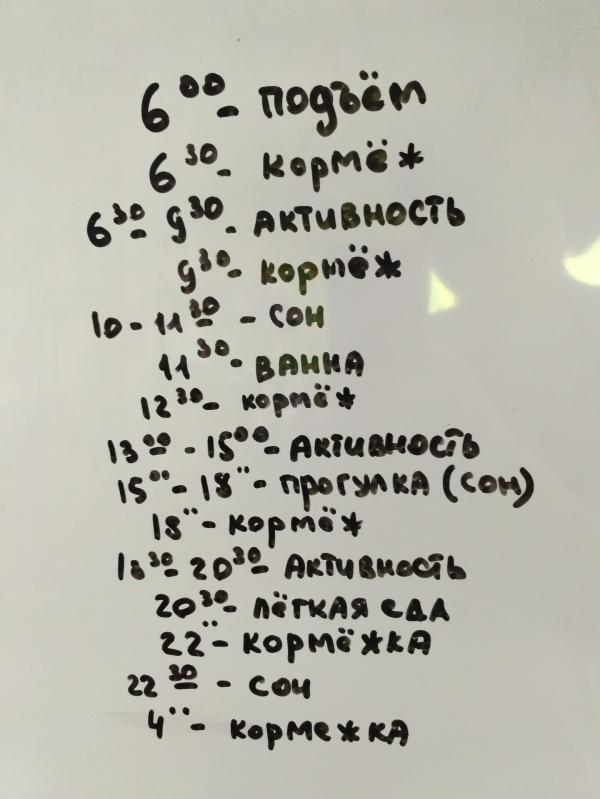 6 00 - подъём
6 30 - кормёж
6 30 - 9 30 - активность
9 30 - кормёж
10 - 11 30 - сон
11 30 - ванна
12 30 - кормёж
13 00 - 15 00 - активность
15 00 - 18 ¨ - прогулка (сон)
18 ¨ - кормёж
18 30 - 20 30 - активность
20 30 - лёгкая еда
22 ¨ - кормёжка
22 30 - сон
4 ¨ - кормежка